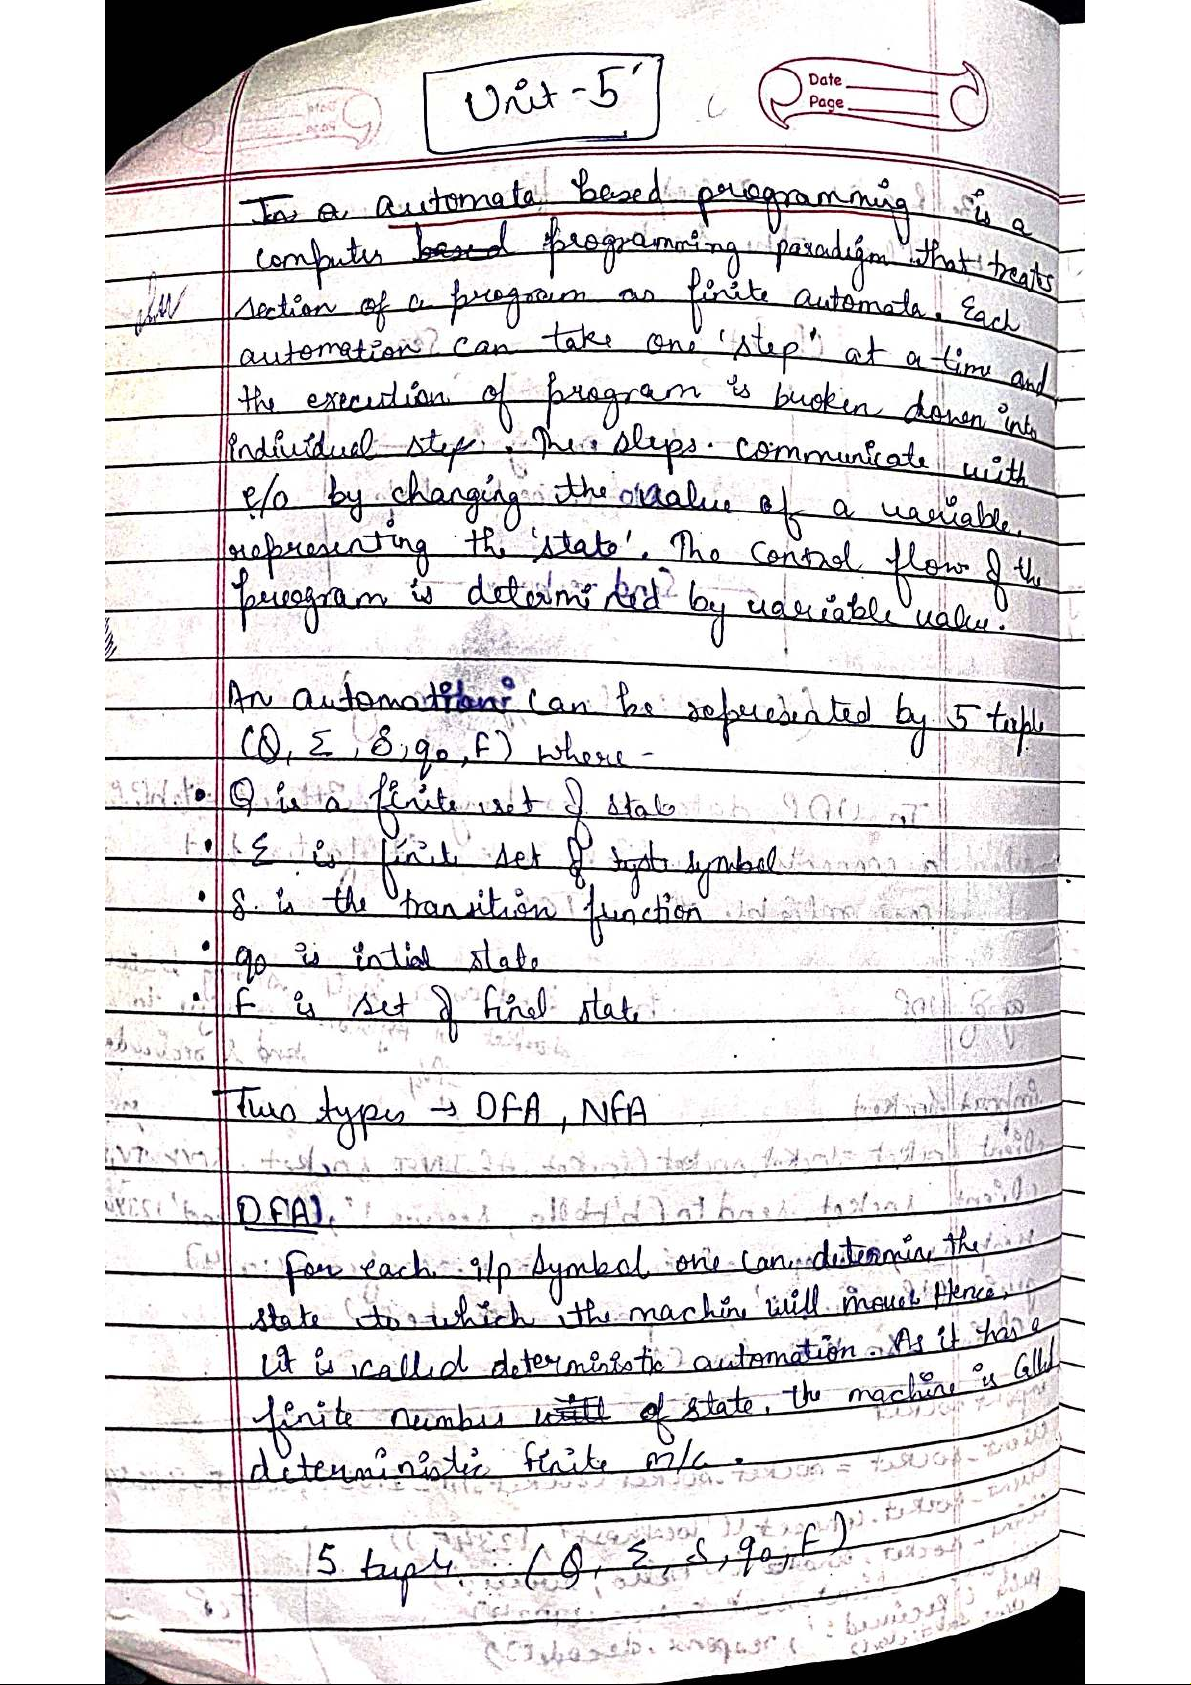 Unit - 5
Date
Page
In a automata based programming is a
computer based programming paradigm that treats
section of a program as finite automata. Each
automation can take one 'step' at a time and
the execution of program is broken down into
individual step. The steps communicate with
e/o by changing the value of a variable
representing the 'state'. The control flow of the
program is determined by variable value.
An automation can be represented by 5 tuple
(Q, Σ, δ, q0, F) where -
• Q is a finite set of state
• Σ is finite set of symbol
• δ is the transition function
• q0 is intial state
• F is set of final state
Two types → DFA, NFA
DFA).
For each i/p symbol one can determine the
state to which the machine will move. Hence,
it is called deterministic automation. As it has a
finite number of state, the machine is called
deterministic finite m/c.
5 tuple (Q, Σ, δ, q0, F)